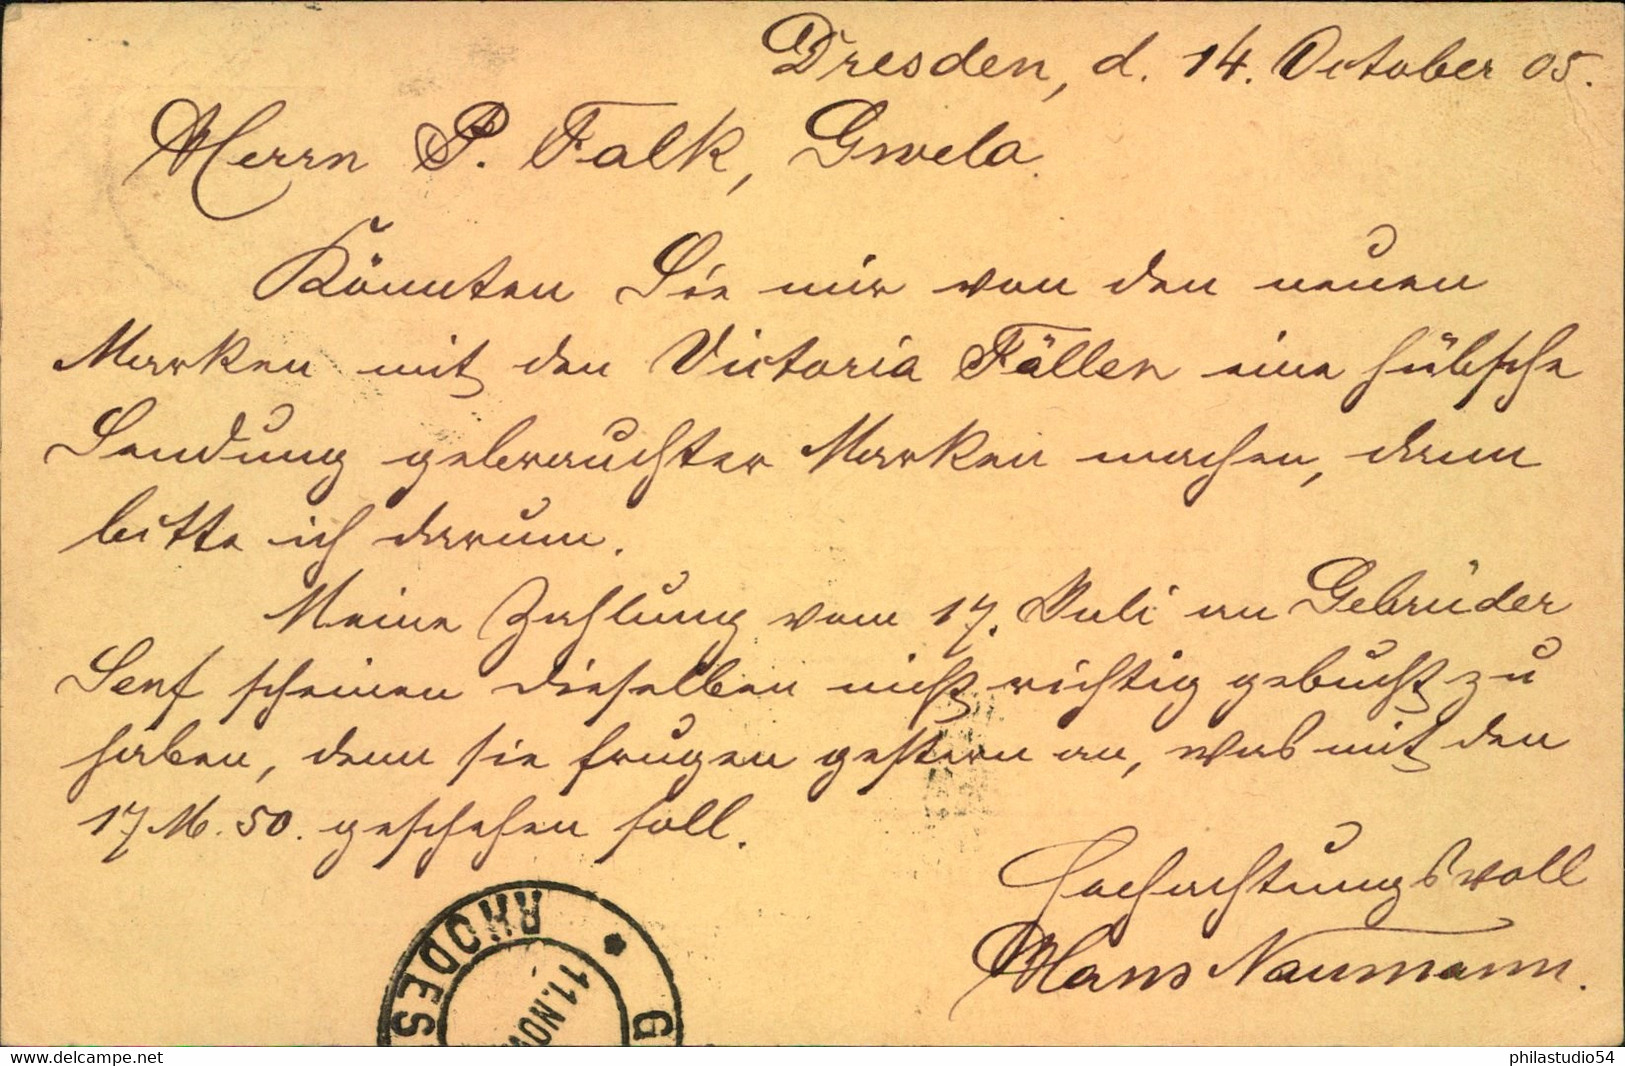 Dresden, d. 14. October 05.
Herrn P. Falk, Gwelo.
Könnten Sie mir von den neuen
Marken mit den Victoria Fällen eine hübsche
Sendung gebrauchter Marken machen, dann
bitte ich darum.
Meine Zahlung vom 17. Juli an Gebrüder
Senf scheinen dieselben nicht richtig gebucht zu
haben, denn sie frugen gestern an, was mit den
17 M. 50. geschehen soll.
Hochachtungsvoll
Hans Naumann.
RHODES
G
11. NOV
www.delcampe.net
philastudio54